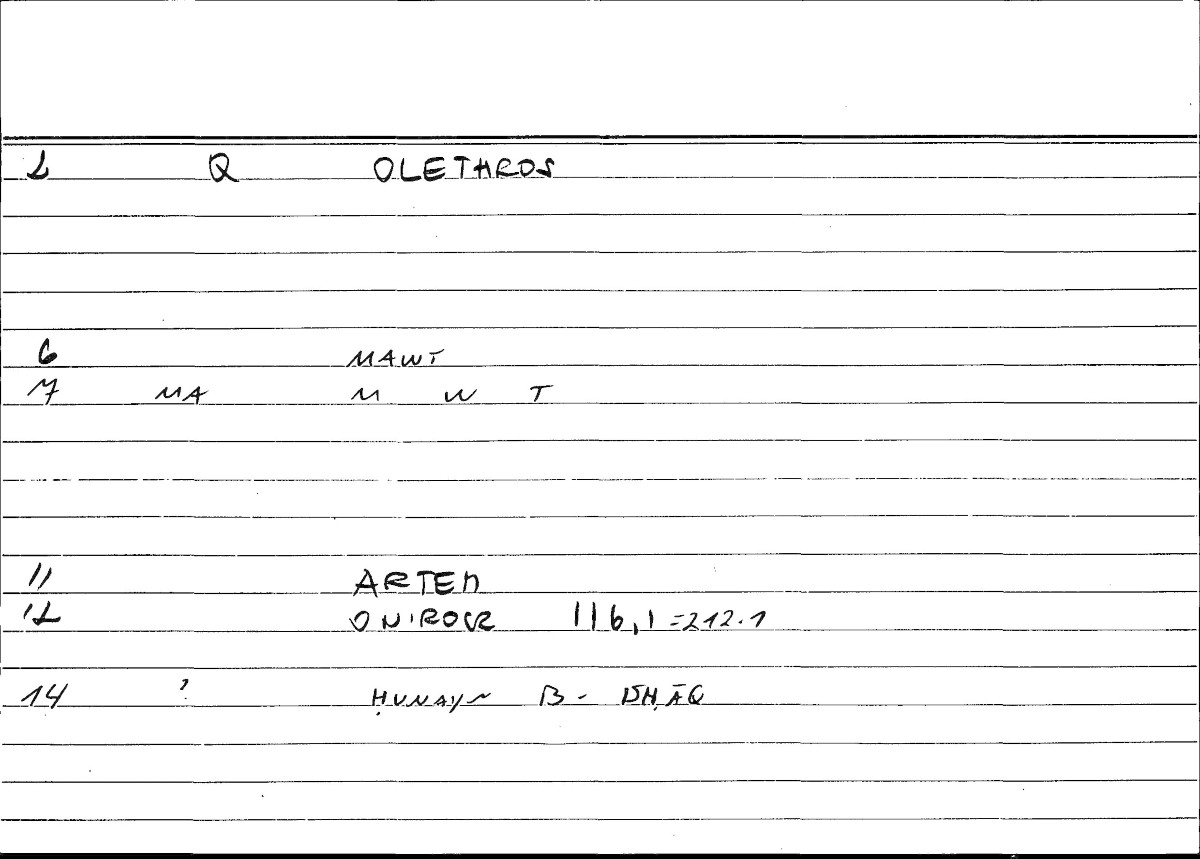 2 Q OLETHROS
6 MAWT
7 MA M W T
11 ARTEM
12 ONIROCR 116,1 =212.1
14 ? ḤUNAYN B- ISḤĀQ